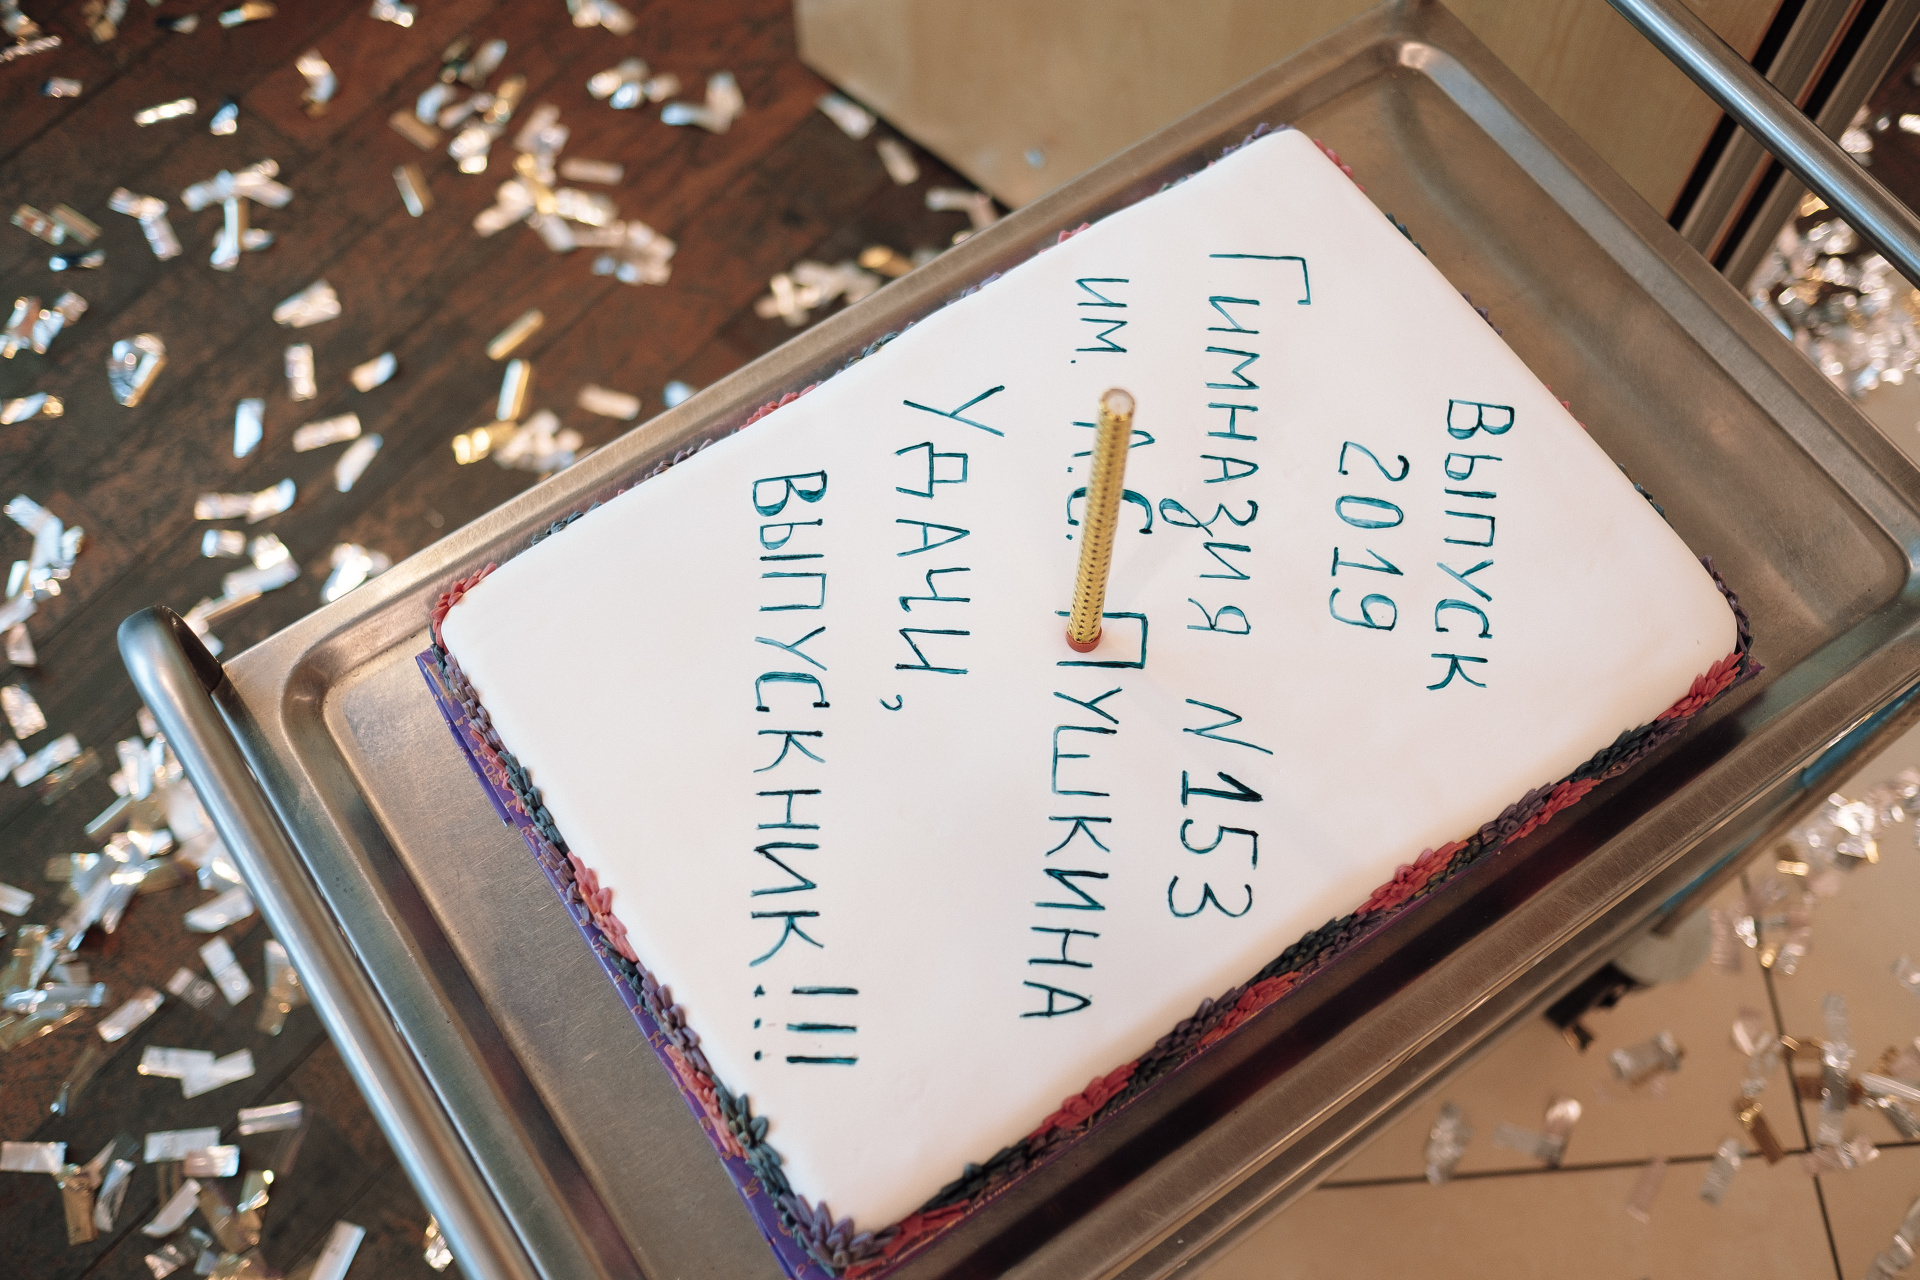 Выпуск
2019
Гимназия N153
им. А.С. Пушкина
Удачи,
выпускник!!!